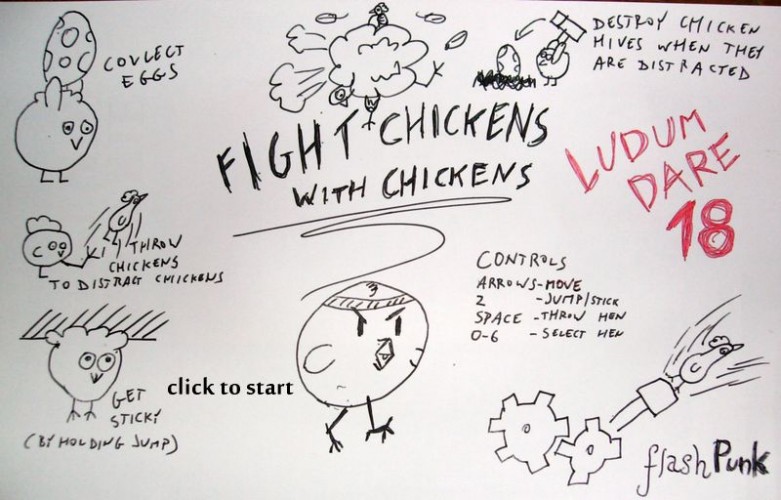 COVLECT
EGGS
DESTROY CHICKEN
HIVES WHEN THEY
ARE DISTRACTED
FIGHT CHICKENS
WITH CHICKENS
LUDUM
DARE
18
THROW
CHICKENS
TO DISTRACT CHICKENS
CONTROLS
ARROWS-MOVE
Z -JUMP/STICK
SPACE -THROW HEN
0-6 -SELECT HEN
3
click to start
GET
STICKY
(BY HOLDING JUMP)
flashPunk